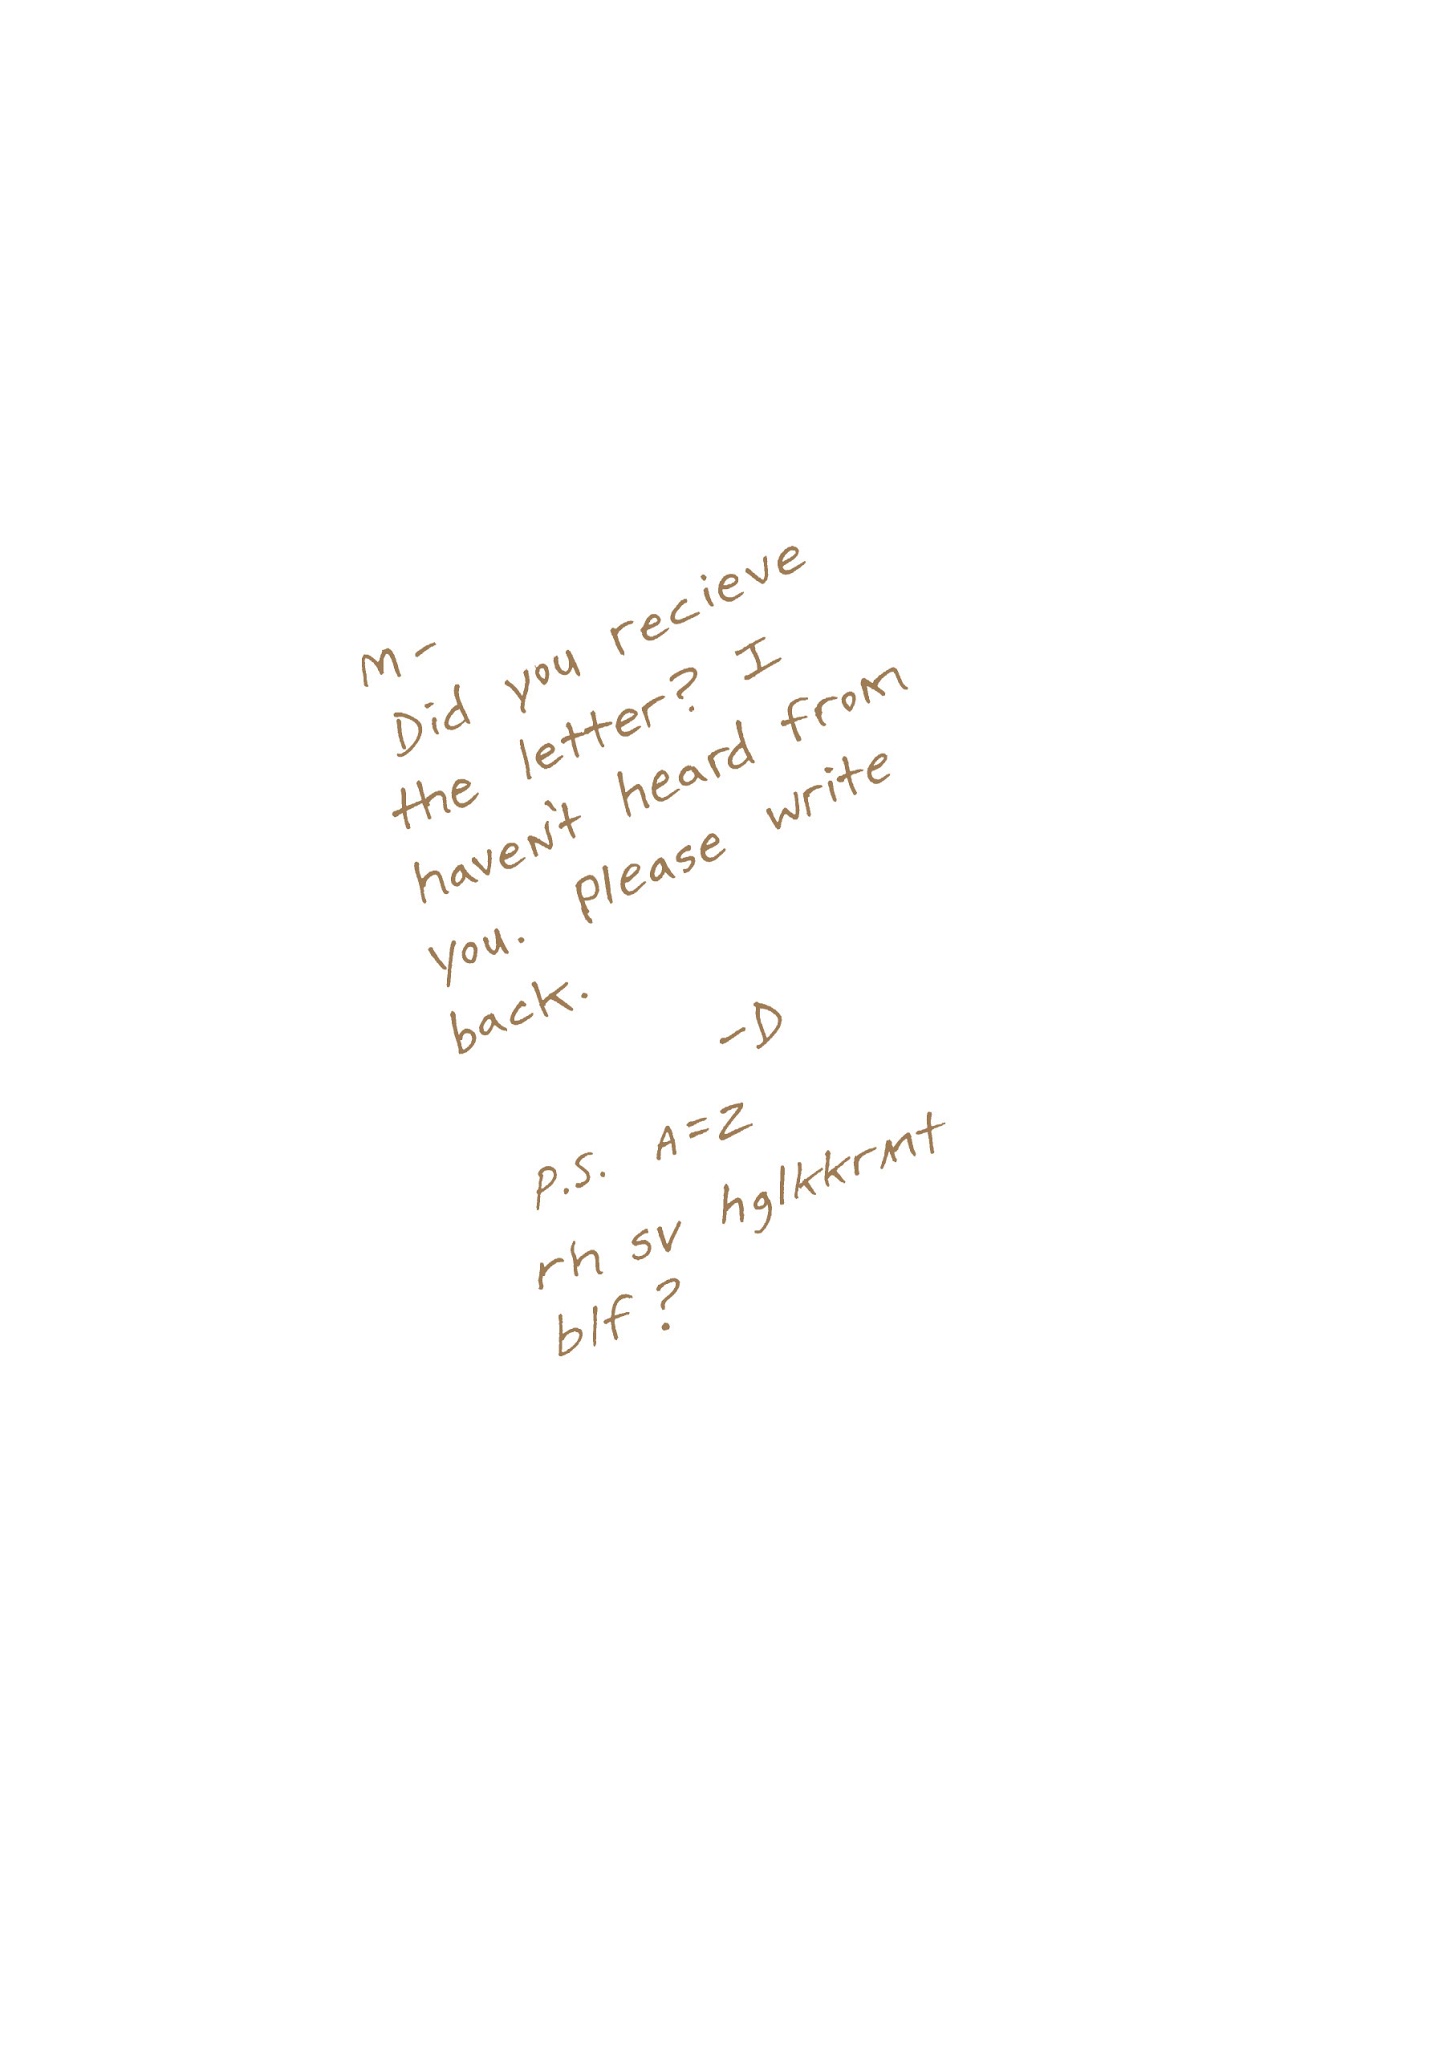 M-
Did you recieve
the letter? I
haven't heard from
you. please write
back.
-D
P.S. A=Z
rh sv hglkkrmt
blf?